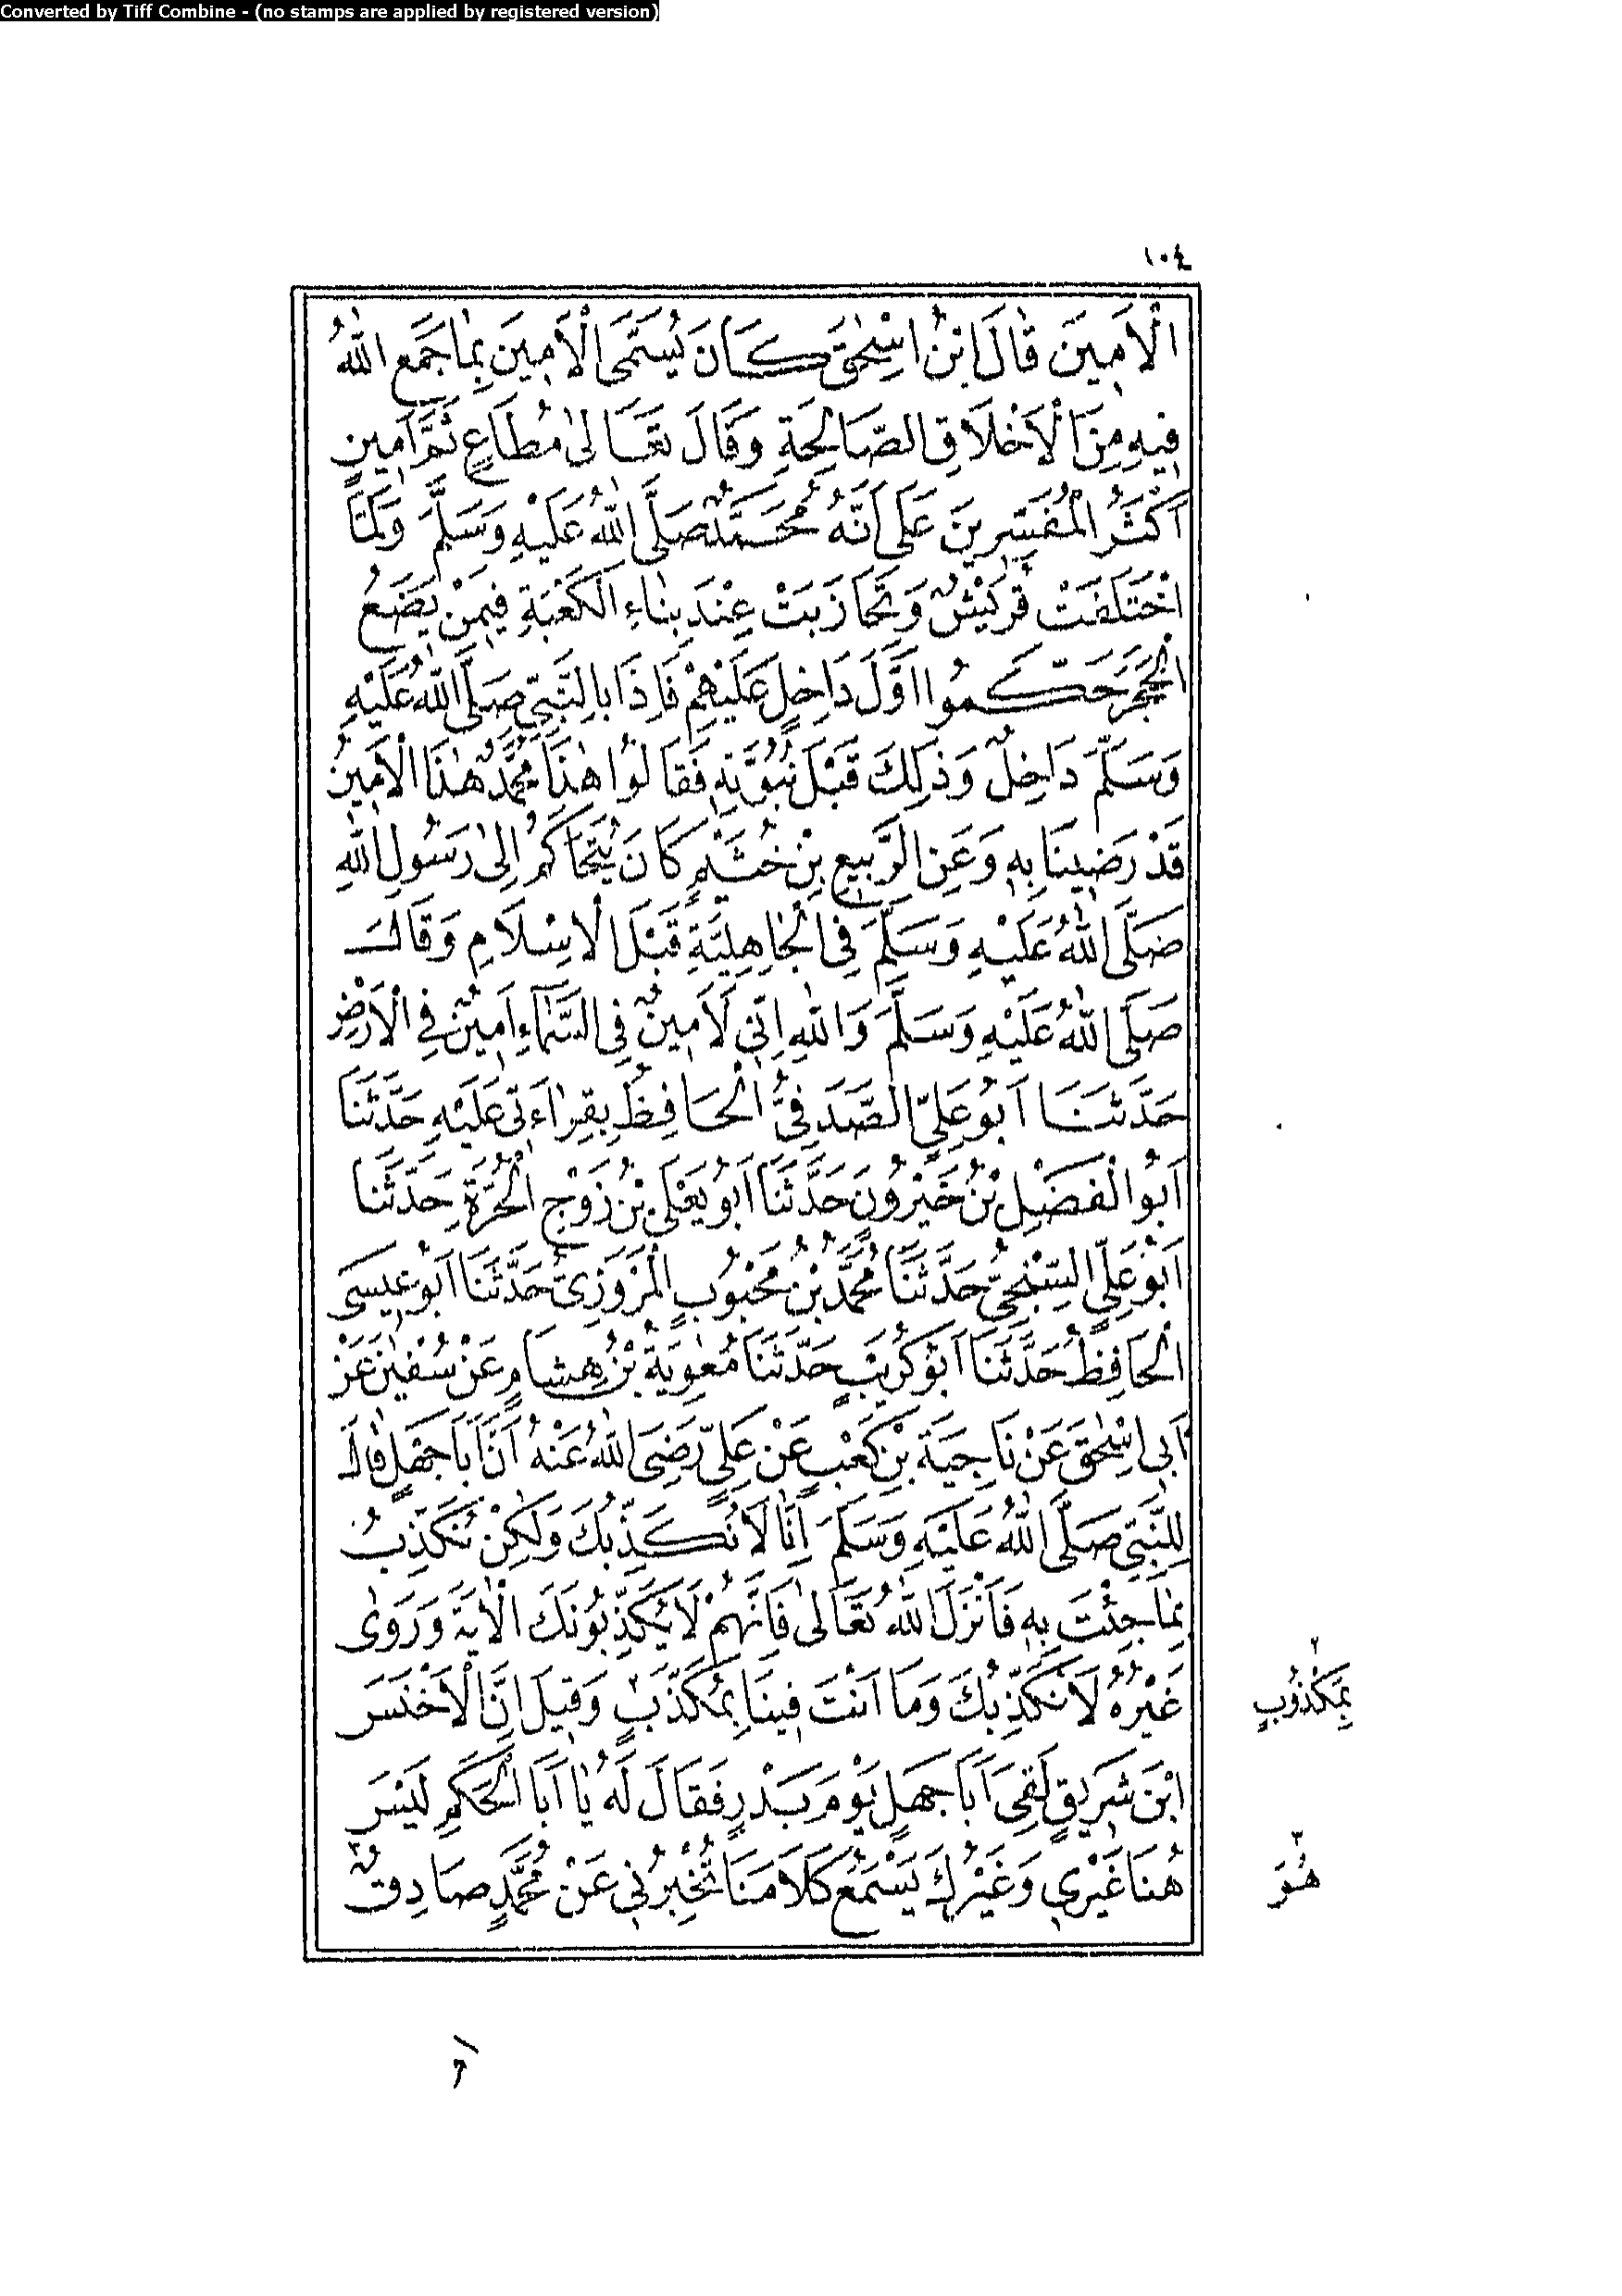 Converted by Tiff Combine - (no stamps are applied by registered version)
١٠٤
الْاَمِينَ قَالَ ابْنُ اِسْحٰقَ كَانَ يُسَمَّى الْاَمِينَ بِمَا جَمَعَ اللّٰهُ
فِيهِ مِنَ الْاَخْلَاقِ الصَّالِحَةِ وَقَالَ تَعَالىٰ مُطَاعٍ ثَمَّ اَمِينٍ
اَكْثَرُ الْمُفَسِّرِينَ عَلىٰ اَنَّهُ مُحَمَّدٌ صَلَّى اللّٰهُ عَلَيْهِ وَسَلَّمَ وَلَمَّا
اخْتَلَفَتْ قُرَيْشٌ وَتَحَازَبَتْ عِنْدَ بِنَاءِ الْكَعْبَةِ فِيمَنْ يَضَعُ
الْحَجَرَ حَكَّمُوا اَوَّلَ دَاخِلٍ عَلَيْهِمْ فَاِذَا بِالنَّبِيِّ صَلَّى اللّٰهُ عَلَيْهِ
وَسَلَّمَ دَاخِلٌ وَذٰلِكَ قَبْلَ نُبُوَّتِهِ فَقَالُوا هٰذَا مُحَمَّدٌ هٰذَا الْاَمِينُ
قَدْ رَضِينَا بِهِ وَعَنِ الرَّبِيعِ بْنِ خُثَيْمٍ كَانَ يُتَحَاكَمُ اِلىٰ رَسُولِ اللّٰهِ
صَلَّى اللّٰهُ عَلَيْهِ وَسَلَّمَ فِي الْجَاهِلِيَّةِ قَبْلَ الْاِسْلَامِ وَقَالَ
صَلَّى اللّٰهُ عَلَيْهِ وَسَلَّمَ وَاللّٰهِ اِنِّي لَاَمِينٌ فِي السَّمَاءِ اَمِينٌ فِي الْاَرْضِ
حَدَّثَنَا اَبُو عَلِيٍّ الصَّدَفِيُّ الْحَافِظُ بِقِرَاءَتِي عَلَيْهِ حَدَّثَنَا
اَبُو الْفَضْلِ بْنُ خَيْرُونَ حَدَّثَنَا اَبُو يَعْلَى بْنُ زَوْجِ الْحُرَّةِ حَدَّثَنَا
اَبُو عَلِيٍّ السِّنْجِيُّ حَدَّثَنَا مُحَمَّدُ بْنُ مَحْبُوبٍ الْمَرْوَزِيُّ حَدَّثَنَا اَبُو عِيسَى
الْحَافِظُ حَدَّثَنَا اَبُو كُرَيْبٍ حَدَّثَنَا مُعٰوِيَةُ بْنُ هِشَامٍ عَنْ سُفْيٰنَ عَنْ
اَبِي اِسْحٰقَ عَنْ نَاجِيَةَ بْنِ كَعْبٍ عَنْ عَلِيٍّ رَضِيَ اللّٰهُ عَنْهُ اَنَّ اَبَا جَهْلٍ قَالَ
لِلنَّبِيِّ صَلَّى اللّٰهُ عَلَيْهِ وَسَلَّمَ اِنَّا لَا نُكَذِّبُكَ وَلٰكِنْ نُكَذِّبُ
بِمَا جِئْتَ بِهِ فَاَنْزَلَ اللّٰهُ تَعَالىٰ فَاِنَّهُمْ لَا يُكَذِّبُونَكَ الْاٰيَةَ وَرَوٰى
غَيْرُهُ لَا نُكَذِّبُكَ وَمَا اَنْتَ فِينَا بِمُكَذَّبٍ وَقِيلَ اِنَّ الْاَخْنَسَ
٢
بِمَكْذُوبٍ
ابْنَ شَرِيقٍ لَقِيَ اَبَا جَهْلٍ يَوْمَ بَدْرٍ فَقَالَ لَهُ يَا اَبَا الْحَكَمِ لَيْسَ
هُنَا غَيْرِي وَغَيْرُكَ يَسْمَعُ كَلَامَنَا تُخْبِرُنِي عَنْ مُحَمَّدٍ صَادِقٌ
٣
هُوَ